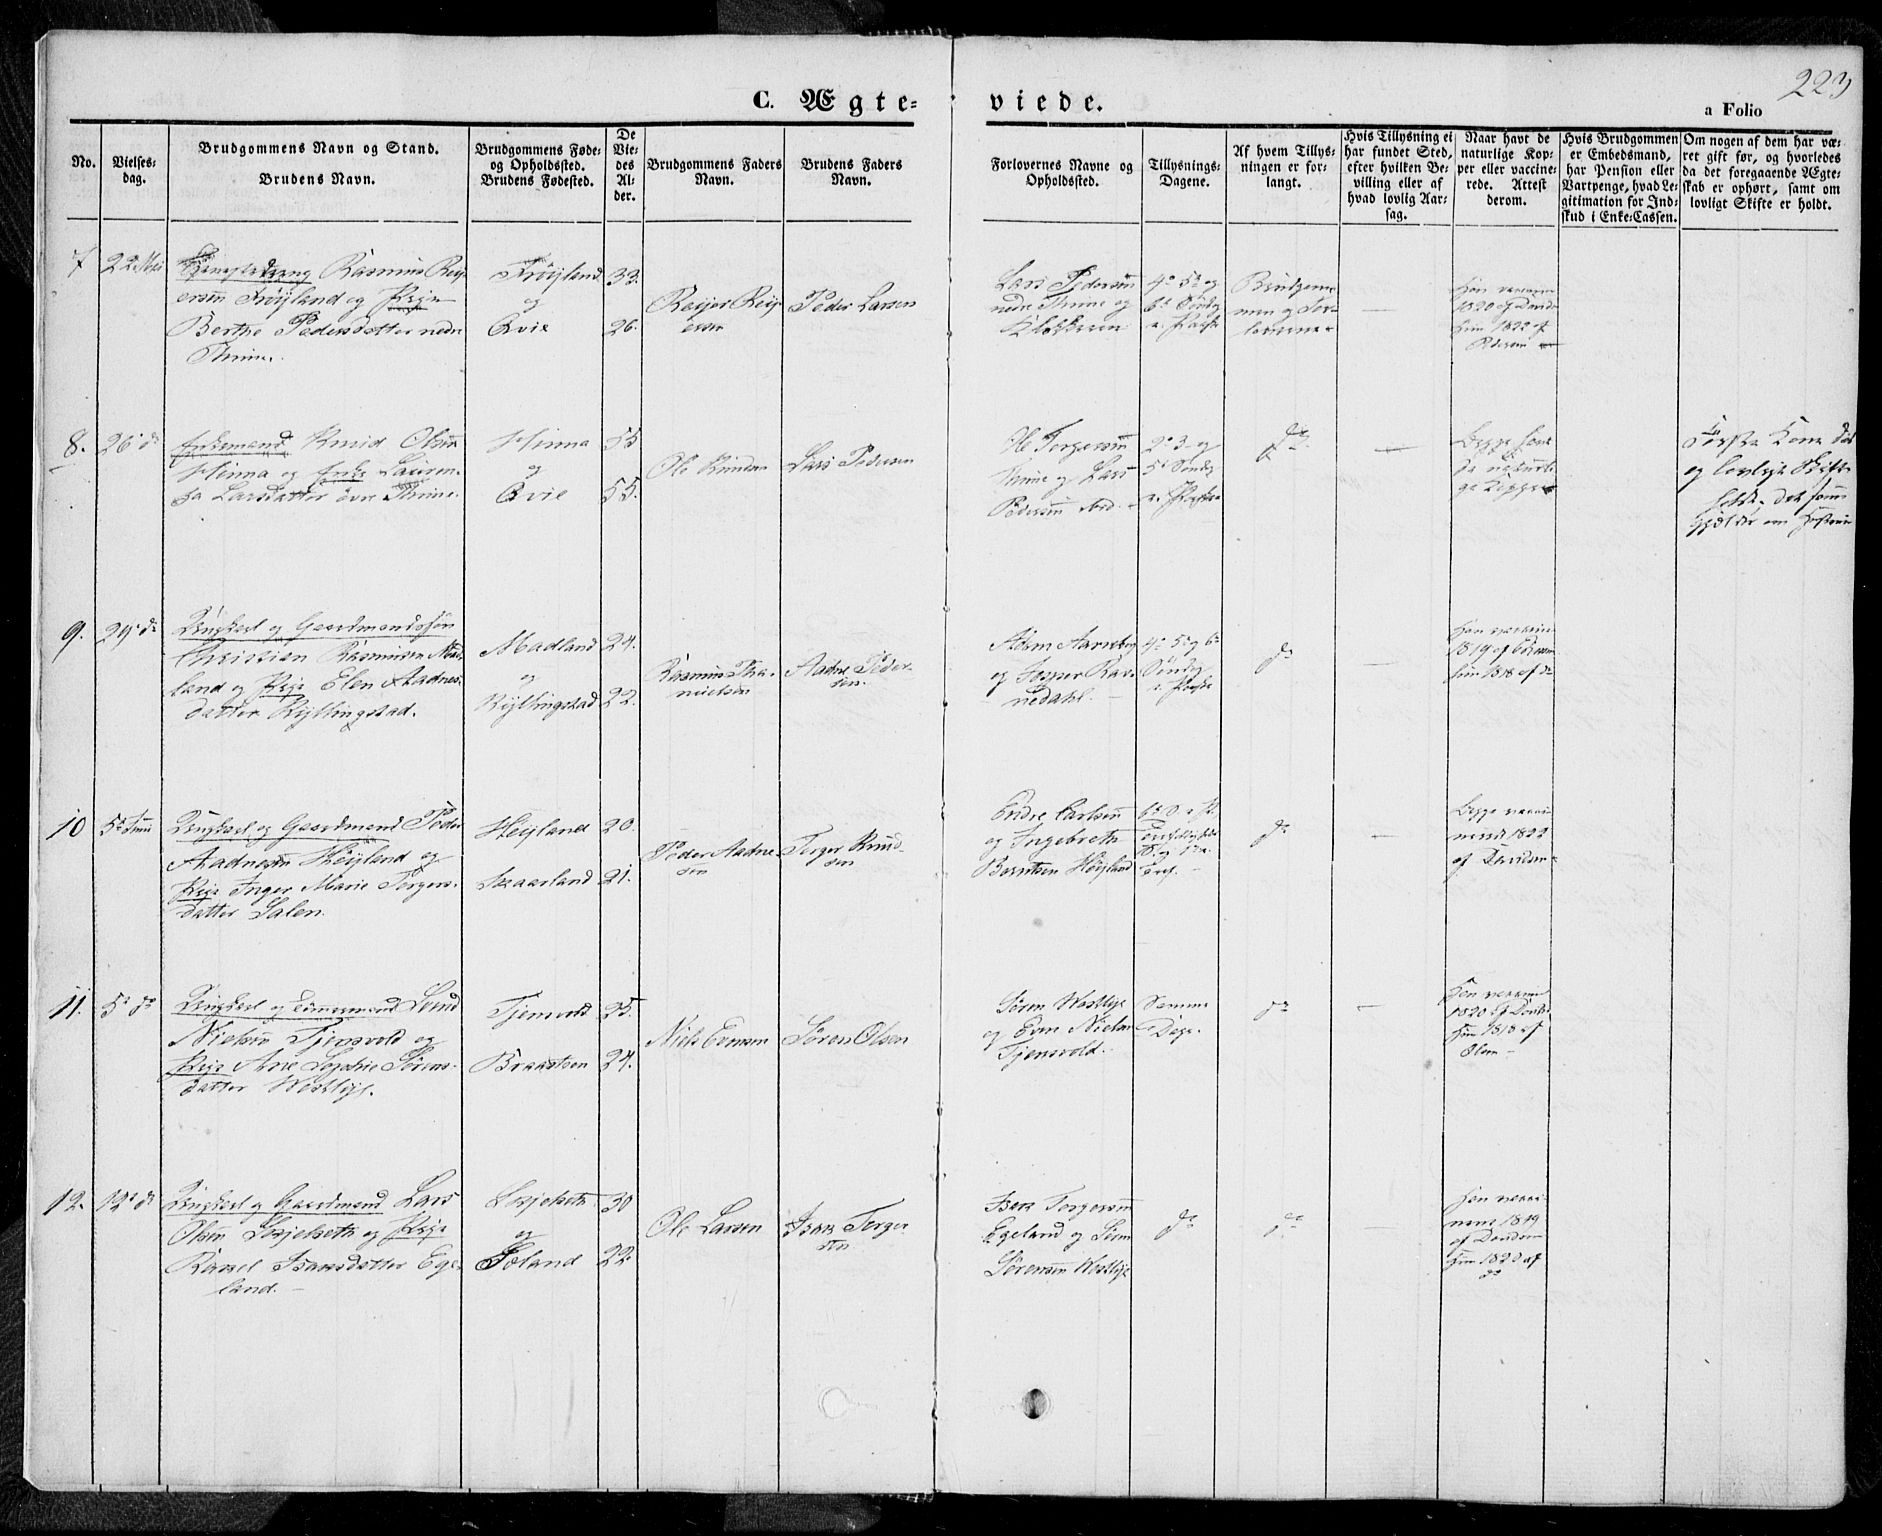 223
C. Ægte-
viede.
a Folio
No.
Vielses-
dag.
Brudgommens Navn og Stand.
Brudens Navn.
Brudgommens Føde-
og Opholdssted.
Brudens Fødested.
De
Vie-
des
Al-
der.
Brudgommens Faders
Navn.
Brudens Faders
Navn.
Forlovernes Navne og
Opholdssted.
Tillysnings-
Dagene.
Af hvem Tillys-
ningen er for-
langt.
Hvis Tillysning ei
har fundet Sted,
efter hvilken Be-
villing eller af
hvad lovlig Aar-
sag.
Naar havt de
naturlige Kop-
per eller vaccine-
rede. Attest
derom.
Hvis Brudgommen
er Embedsmand,
har Pension eller
Vartpenge, hvad Le-
gitimation for Ind-
skud i Enke-Cassen.
Om nogen af dem har væ-
ret gift før, og hvorledes
da det foregaaende Ægte-
skab er ophørt, samt om
lovligt Skifte er holdt.
7
22 Mai
Rasmus Reij
ersen Frøÿland og Pige
Berthe Pedersdatter nedre
Thime.
Frøÿland
og
Qvie
33.
26.
Reijer Reij
ersen
Peder Larsen
Lars Pedersøn
nedre Thime og
Klokkeren
4de 5te og
6te Søndag
e. Paaske
Brudgom
men og For
loverne
—
Han vaccin
1820 af
Hun 1822 af
8.
26 do
Enkemand Knud Olsøn
Hinna og Enke Lauren
sa Larsdatter øvre Thime.
Hinna
og
Qvie
55
55.
Ole Knudsen
Lars Pedersen
Ole Torgersøn
Thime og Lars
Pedersøn
2de 3die og
5te Søndag
e. Paaske
do
—
Begge have
de naturli
ge Kopper
Første Kone død
og lovligt Skifte
holdt. det samme
gjælder om
9.
29 do
Ungkarl og Gaardmandssøn
Christian Rasmussen Mad
land og Pige Elen Aadnes
datter Rÿllingstad.
Madland
og
Rÿllingstad
24.
22.
Rasmus Tha
nielsen
Aadne Peder
sen.
Adam
og Jesper Rav
nedahl.
4de 5te og 6te
Søndag
e. Paaske
do
—
Han vaccin
1819 af
hun 1818 af do
10
5te Juni
Ungkarl og Gaardmand Peder
Aadnesøn Høÿland og
Pige Inger Marie Torgers
datter Salen.
Høÿland
Skaarland
20.
21.
Peder Aadne
sen
Torger Knud
sen
Endre Carlsen
og Ingebreth
Berntsen Høÿland
do
—
Begge vacci
nerede 1822
af Davidsen
11.
5te do
Ungkarl og Tømmermand Svend
Nielsen Tjensvold og
Pige Ane Sophie Sørens
datter Westlÿe.
Tjensvold
Braasteen
25.
24.
Niels Evensen
Søren Olsen
Søren Westlÿe
og Even Nielsen
Tjensvold.
Samme
Dage.
do
—
Han vaccin
1820 af
Hun 1818 af
Olsen
12.
12te do
Ungkarl og Gaardmand Lars
Olsen og Pige
Rachel Isaksdatter Ege
land.
og
Foland
30
22
Ole Larsen
Isak Torger
sen
Isak Torgersøn
Egeland og Søren
Sørensen Westlÿe
do
do
—
Han vacci
nered 1819
af Davidsen
Hun 1822 af
do